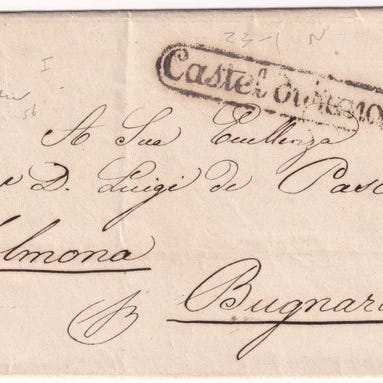 23-1 N
I
Castel di
56
A Sua Eccellenza
D. Luigi de Pas
lmona
B Bugnar